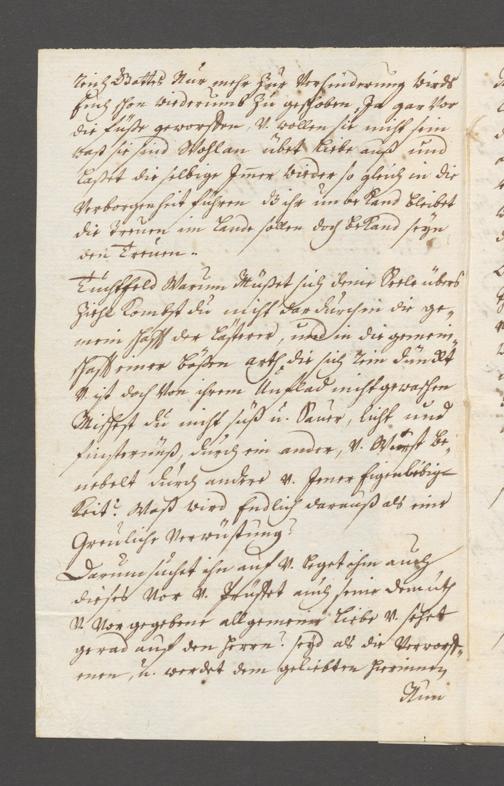 Reich Gottes Nur mehr zur Verhinderung wirds
Euch schon wiederumb zu geschoben, Ja gar vor
die füsse geworffen, V. wollen sie nicht sein
waß sie sind Wohl an übet Liebe auß und
Lasset die selbige Imer wieder so gleich in die
Verborgenheit führen dz ihr unbekand bleibet
die Treuen im Lande sollen doch bekand seyn
den Treuen.
Tuchtfeld Warum Müsset sich deine Seele
Kombst du nicht dardurch in die ge-
mein schafft der Lästerer, und in die gemein-
schafft einer bößen arth, die sich Rein dünckt
V ist doch von ihrem Unflad nicht gewaschen
Mischest du nicht süß u. Sauer, licht und
finsternüß, durch ein ander, V. Wirst be-
nebelt durch andere V. Jener Eigenliebig-
keit? Waß wird Endlich darauß als eine
Greuliche Verwüstung?
Darum suchet ihn auf V. leget ihm auch
dieses Vor V. Prüffet auch seine demuth
V. Vor gegebene allgemeine Liebe V. sehet
gerad auf den Herrn? seyd als die Verworff-
enen, u. werdet dem geliebten
Nun